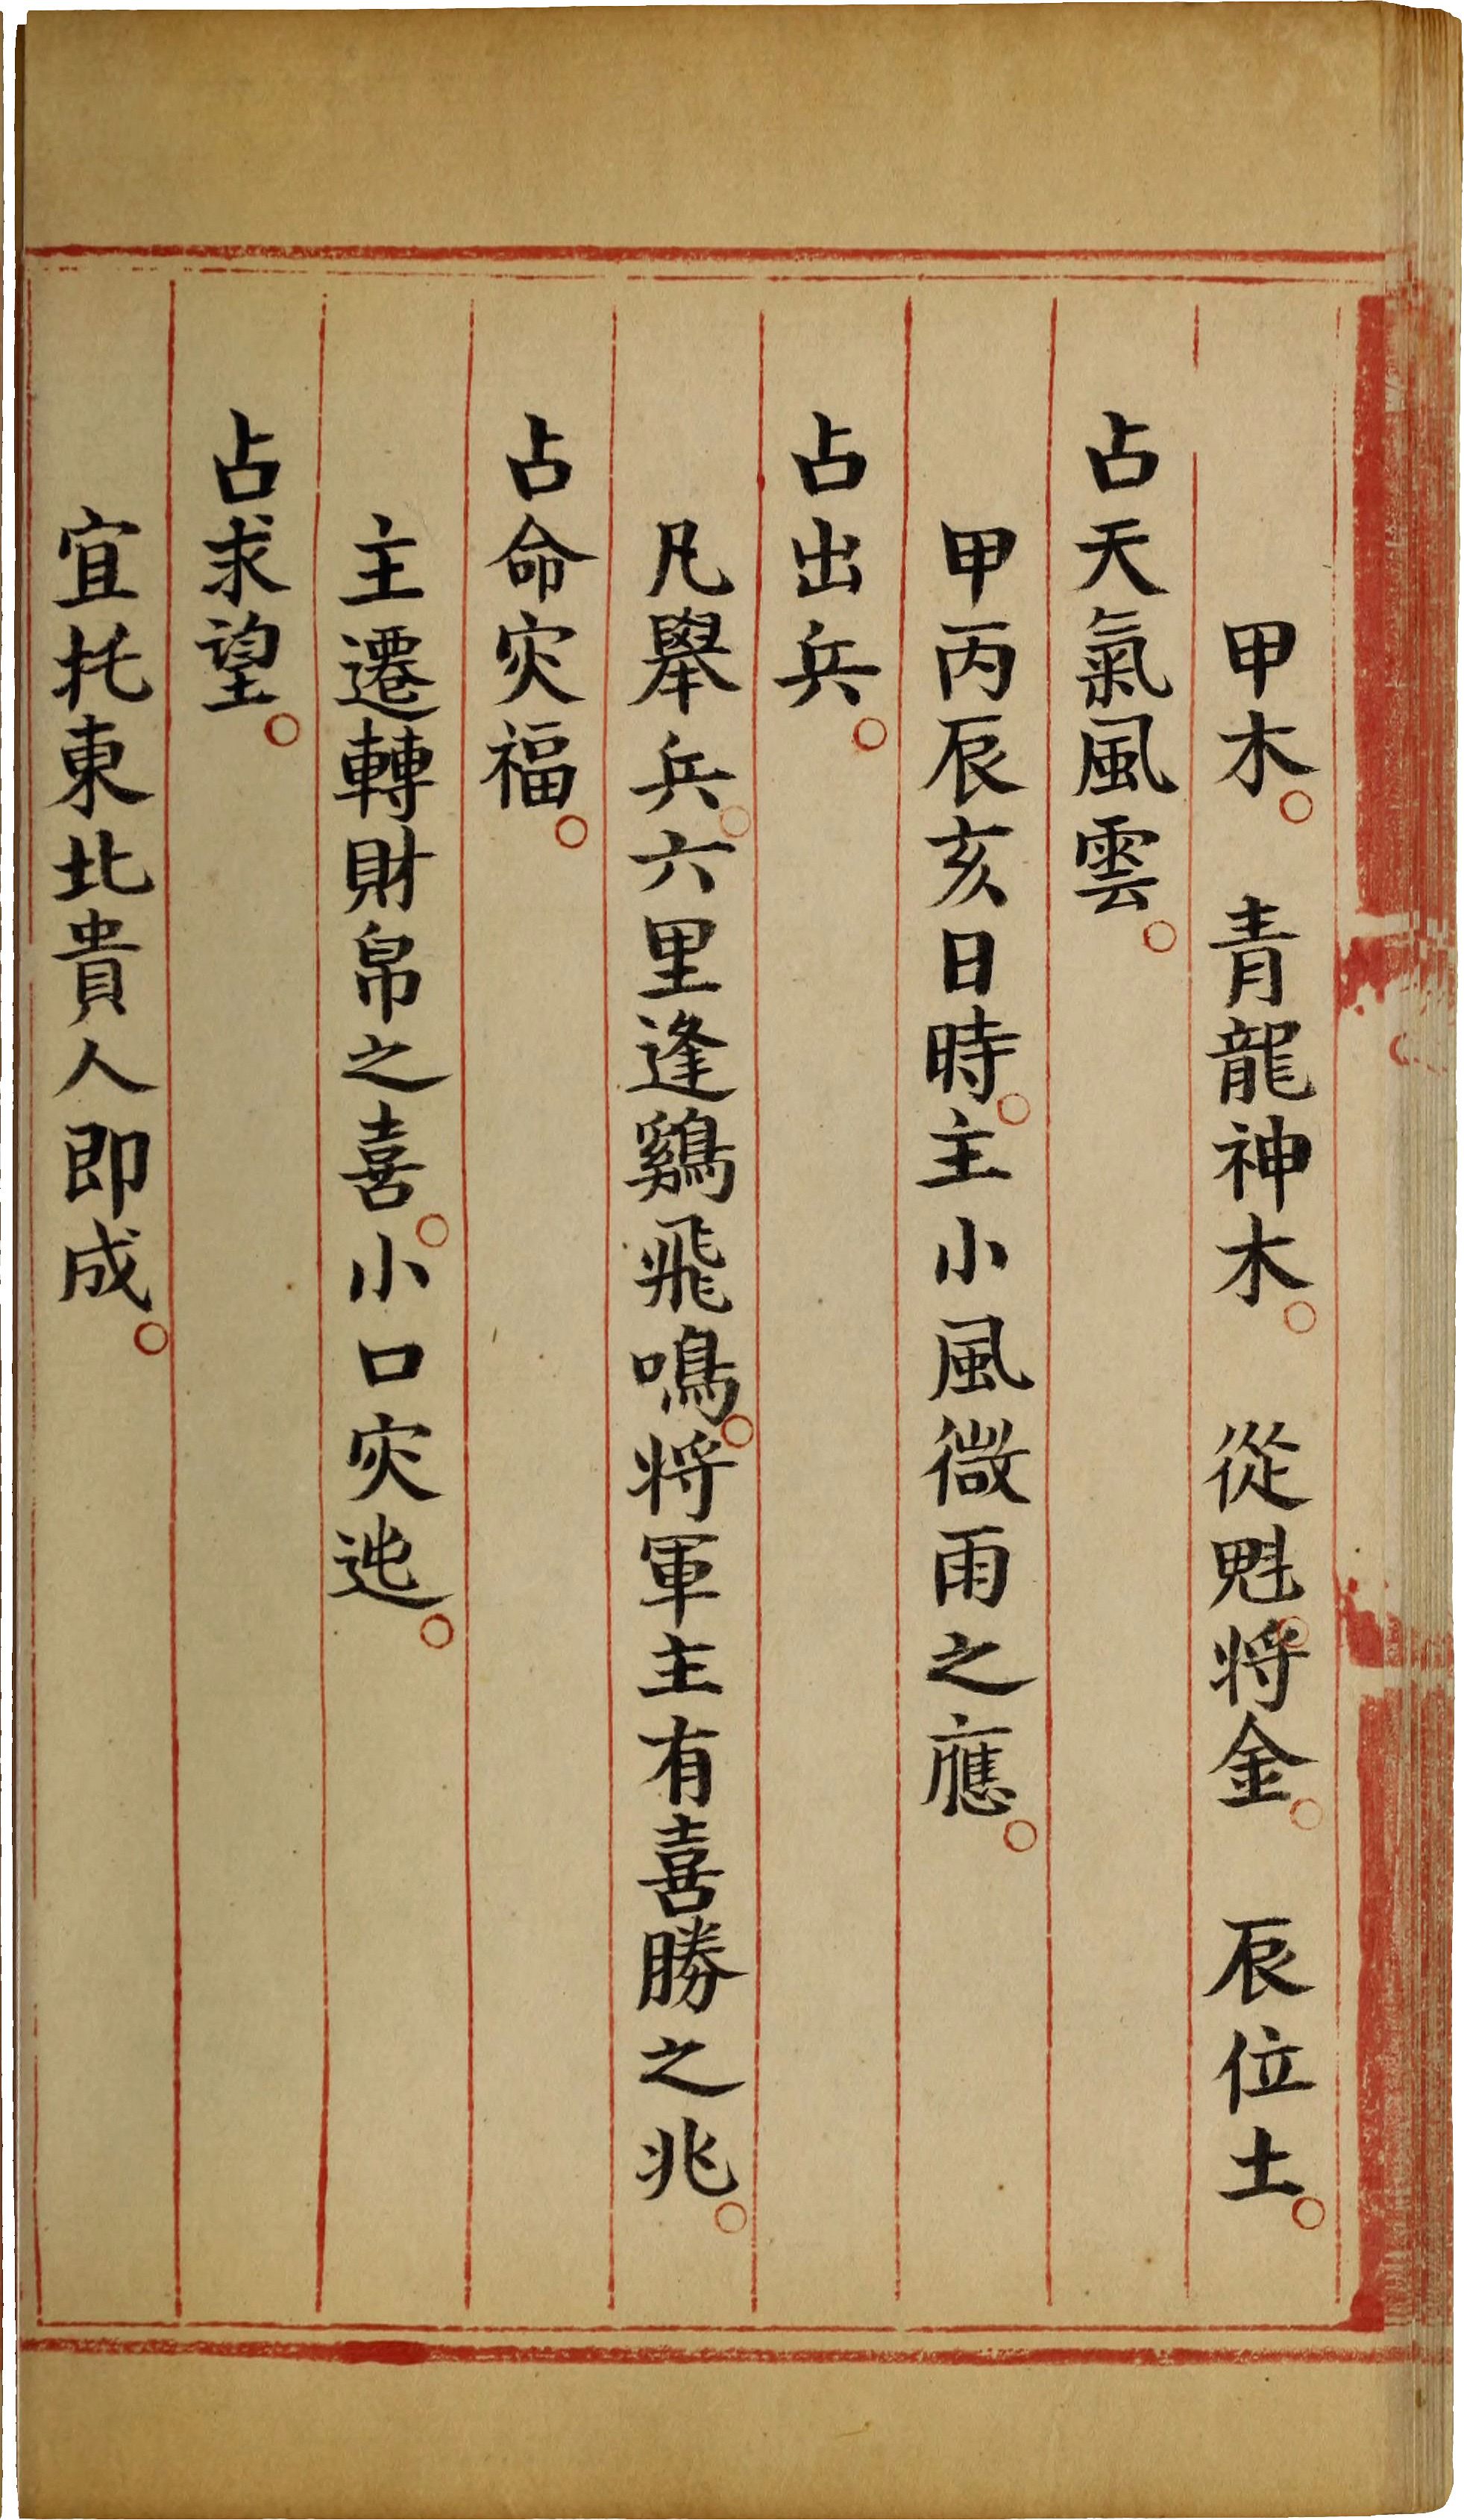 甲木。　青龍神木。　從魁。將金。　辰位土。
占天氣風雲。
甲丙辰亥日時。主小風微雨之應。
占出兵。
凡舉兵。六里逢鷄飛鳴。將軍主有喜勝之兆。
占命灾福。
主遷轉財帛之喜。小口灾迍。
占求望。
宜托東北貴人即成。